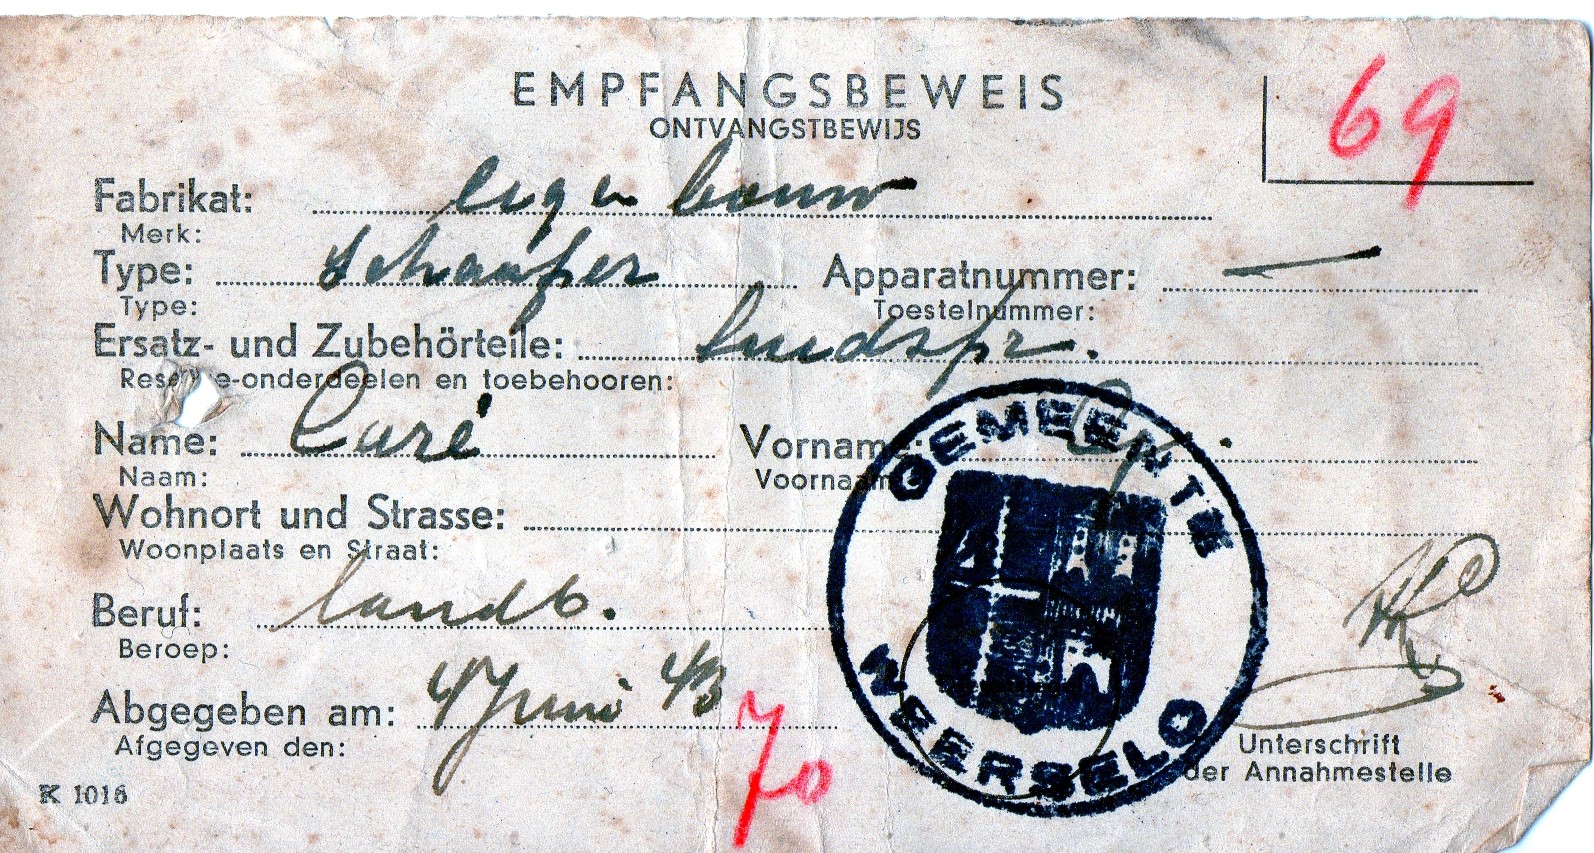 EMPFANGSBEWEIS
ONTVANGSTBEWIJS
69
Fabrikat: eigen bouw
Merk:
Type: Schaafer Apparatnummer: —
Type: Toestelnummer:
Ersatz- und Zubehörteile: luidspr.
Reserve-onderdeelen en toebehooren:
Name: Caré Vorname:
Naam: Voornaam
Wohnort und Strasse:
Woonplaats en Straat:
Beruf: landb.
Beroep:
Abgegeben am: 4 Juni 43
Afgegeven den:
70
GEMEENTE
WEERSELO
Unterschrift
der Annahmestelle
K 1016